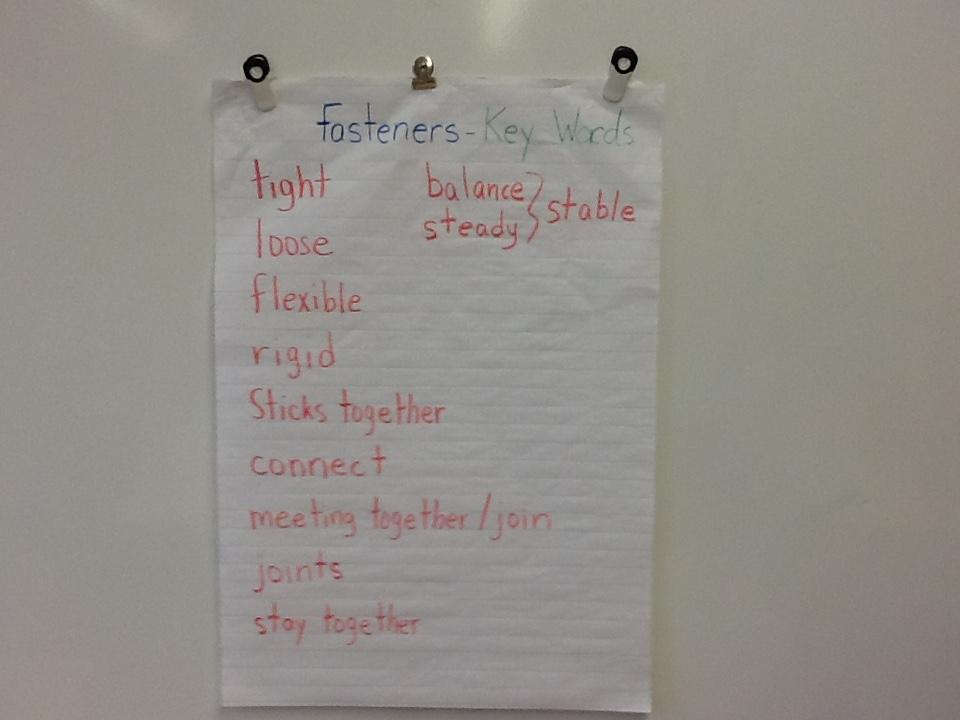 Fasteners - Key Words
tight
loose
flexible
rigid
Sticks together
connect
meeting together / join
joints
stay together
balance
steady } stable